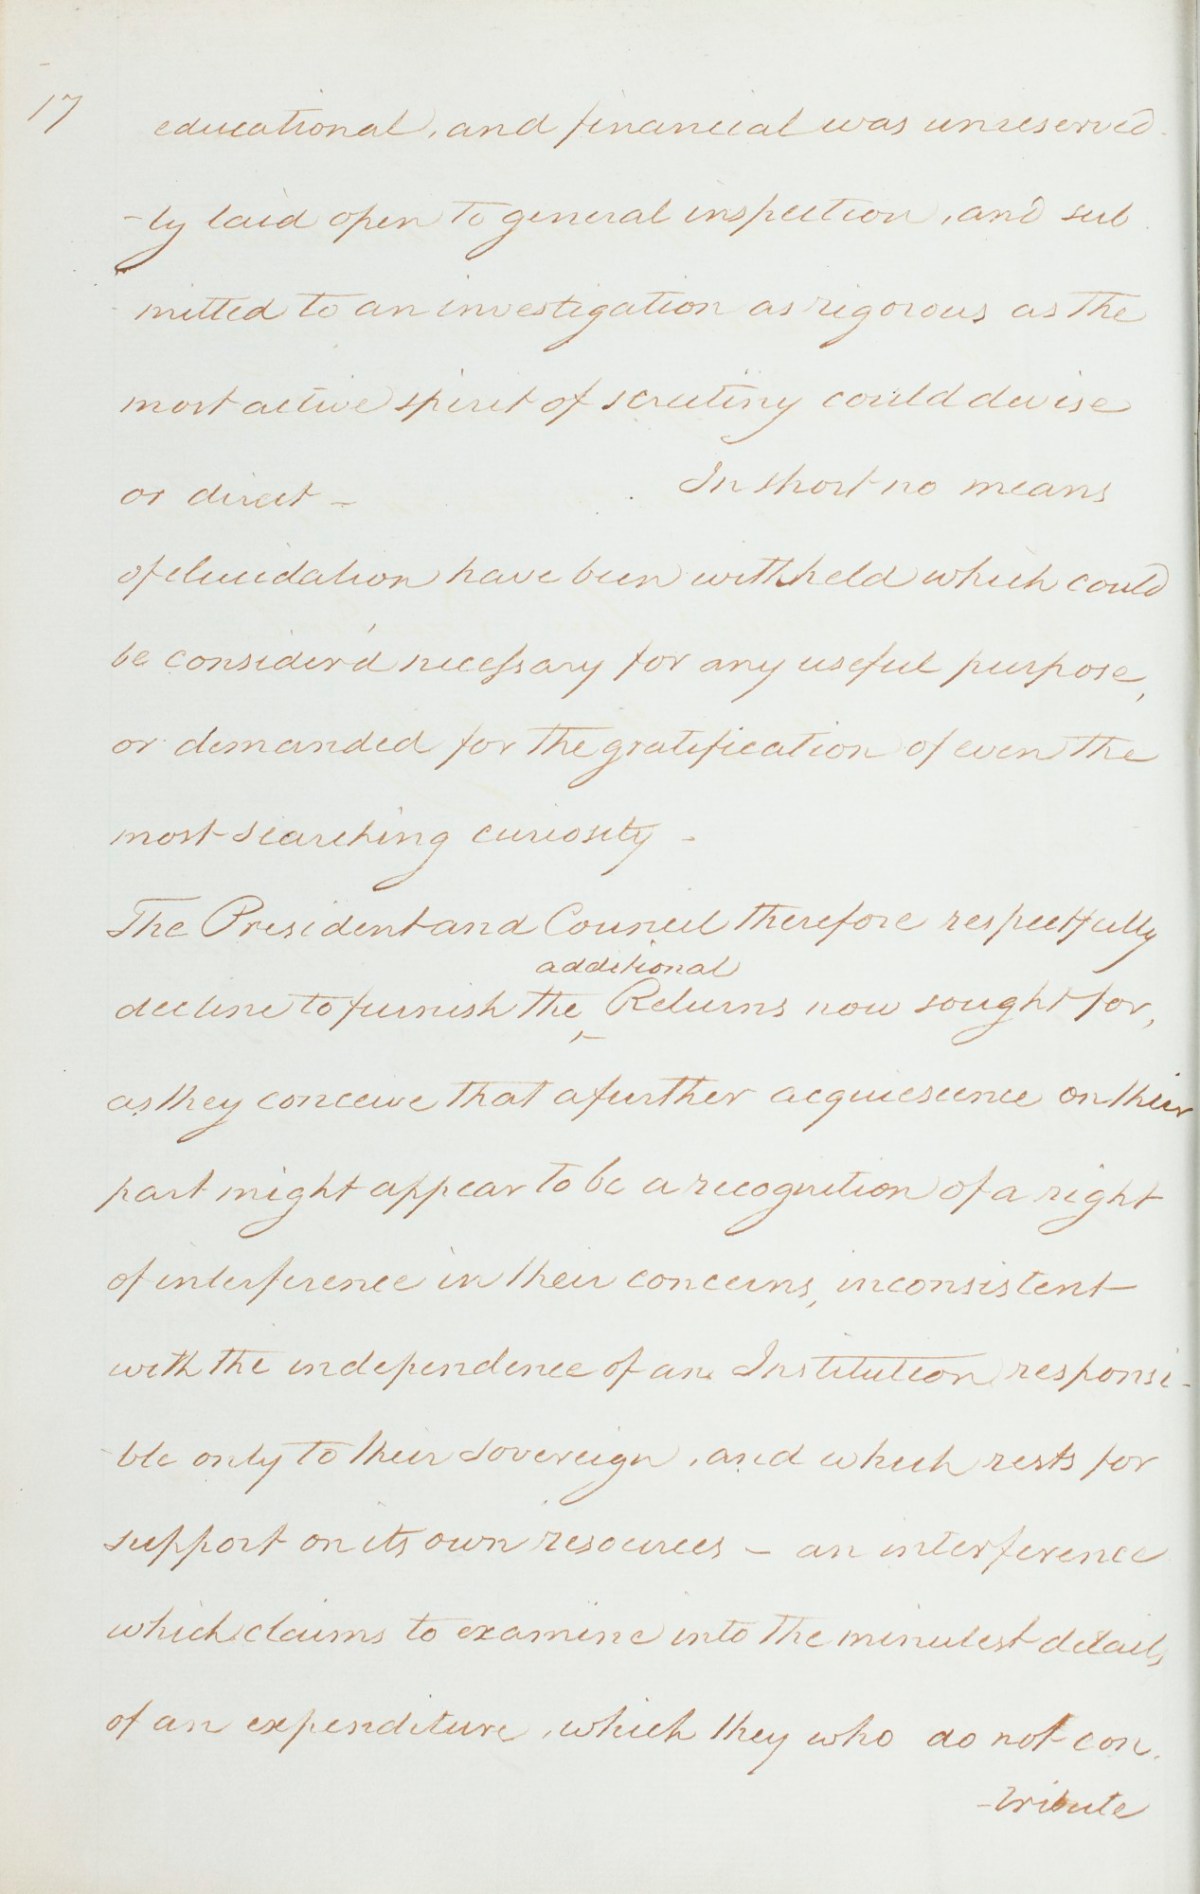 17
educational, and financial was unreserved
-ly laid open to general inspection, and sub
mitted to an investigation as rigorous as the
most active spirit of scrutiny could devise
or direct - In short no means
of elucidation have been withheld which could
be consider'd necessary for any useful purpose,
or demanded for the gratification of even the
most searching curiosity -
The President and Council therefore respectfully
additional
decline to furnish the Returns now sought for,
as they conceive that a further acquiescence on their
part might appear to be a recognition of a right
of interference in their concerns, inconsistent
with the independence of an Institution responsi-
ble only to their Sovereign, and which rests for
support on its own resources - an interference
which claims to examine into the minutest details
of an expenditure, which they who do not con.
-tribute